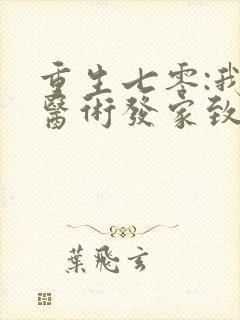 重生七零:我
醫術發家致
葉飛玄